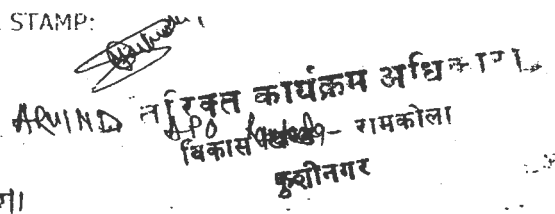 STAMP:
ARVIND
APO
कार्यक्रम अधिकारी
विकास खण्ड - रामकोला
कुशीनगर